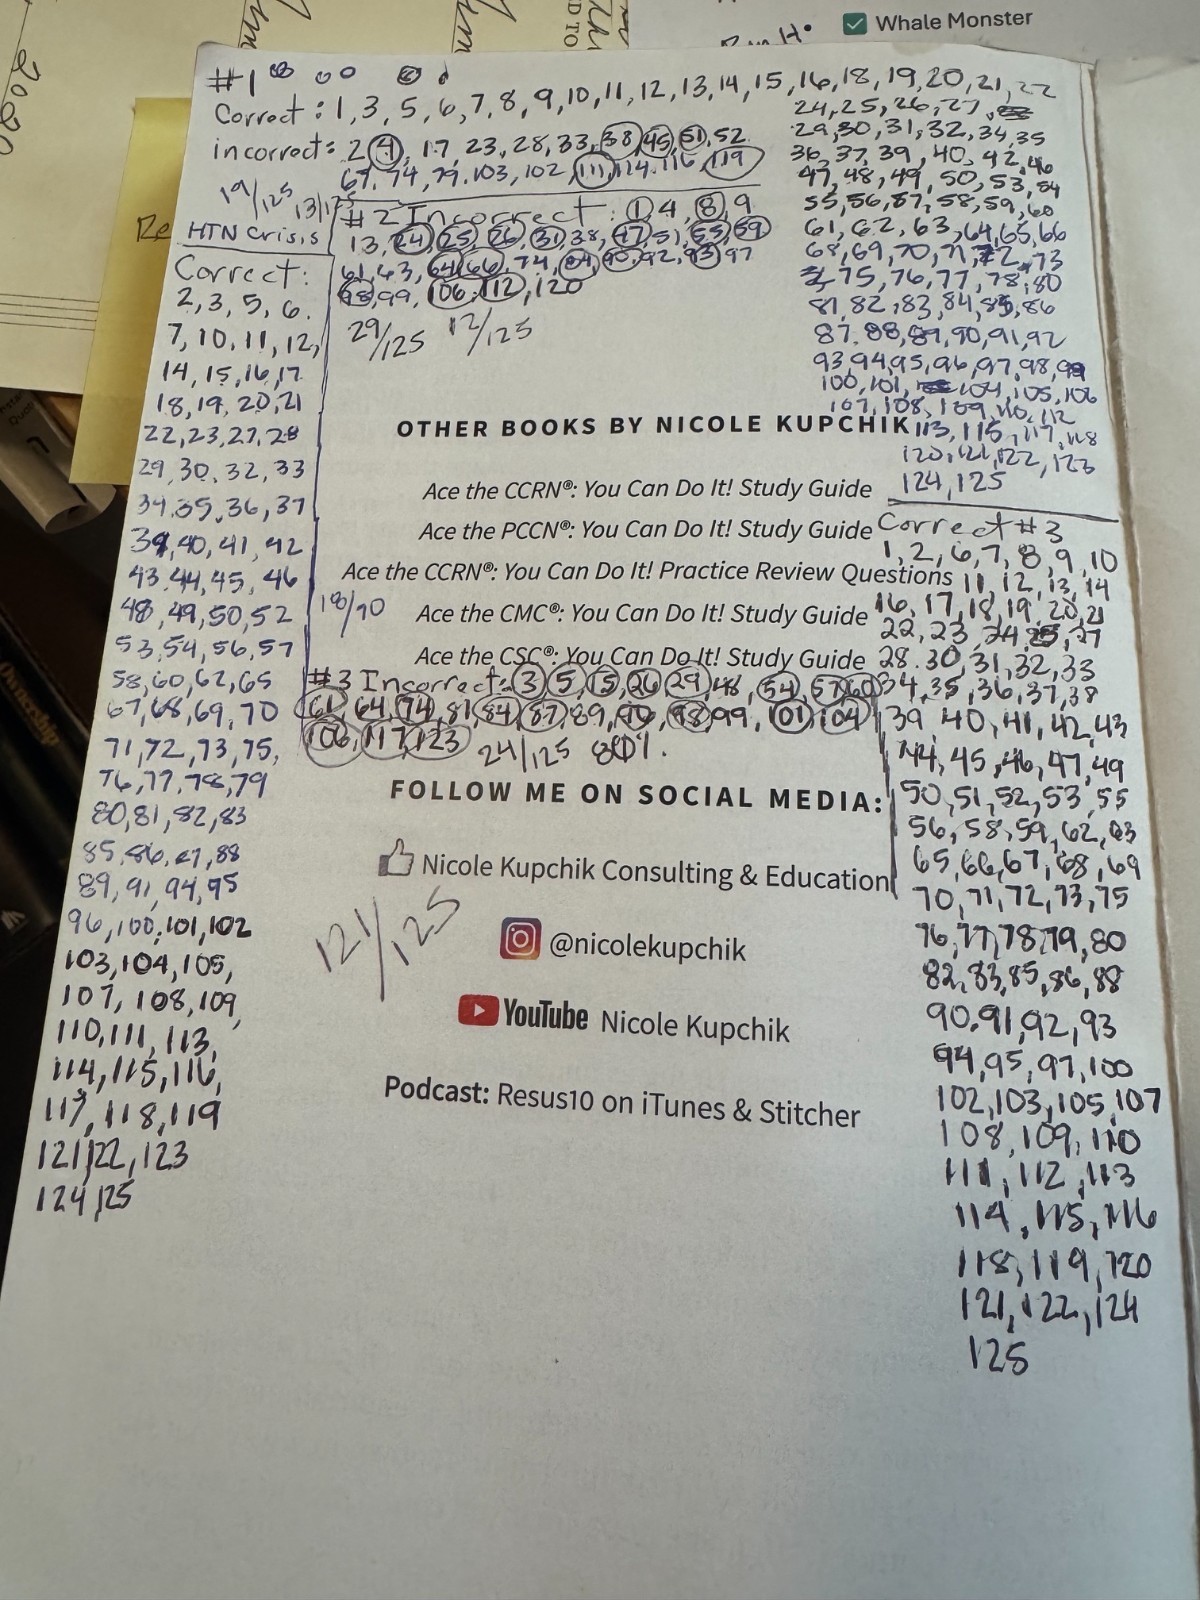 Whale Monster
2020
#1
Correct: 1, 3, 5, 6, 7, 8, 9, 10, 11, 12, 13, 14, 15, 16, 18, 19, 20, 21, 22
24, 25, 26, 27,
29, 30, 31, 32, 34, 35
36, 37, 39, 40, 42, 46
47, 48, 49, 50, 53, 54
55, 56, 57, 58, 59, 60
61, 62, 63, 64, 65, 66
68, 69, 70, 71, 72, 73
75, 76, 77, 78, 80
81, 82, 83, 84, 85, 86
87, 88, 89, 90, 91, 92
93, 94, 95, 96, 97, 98, 99
100, 101, 104, 105, 106
107, 108, 109, 110, 112
113, 115, 117, 118
120, 121, 122, 123
124, 125
incorrect: 2, 4, 17, 23, 28, 33, 38, 45, 51, 52
67, 74, 79, 103, 102, 111, 114, 116, 119
19/125 13/125
HTN Crisis
#2 Incorrect: 1, 4, 8, 9
13, 24, 25, 26, 31, 38, 47, 51, 55, 59
61, 63, 64, 66, 74, 84, 90, 92, 93, 97
98, 99, 106, 112, 120
29/125 12/125
Correct:
2, 3, 5, 6.
7, 10, 11, 12,
14, 15, 16, 17
18, 19, 20, 21
22, 23, 27, 28
29, 30, 32, 33
34, 35, 36, 37
39, 40, 41, 42
43, 44, 45, 46
48, 49, 50, 52
53, 54, 56, 57
58, 60, 62, 65
67, 68, 69, 70
71, 72, 73, 75,
76, 77, 78, 79
80, 81, 82, 83
85, 86, 87, 88
89, 91, 94, 95
96, 100, 101, 102
103, 104, 105,
107, 108, 109,
110, 111, 113,
114, 115, 116,
117, 118, 119
121, 122, 123
124, 125
OTHER BOOKS BY NICOLE KUPCHIK
Ace the CCRN®: You Can Do It! Study Guide
Ace the PCCN®: You Can Do It! Study Guide
Ace the CCRN®: You Can Do It! Practice Review Questions
Ace the CMC®: You Can Do It! Study Guide
Ace the CSC®: You Can Do It! Study Guide
18/90
#3 Incorrect: 3, 5, 15, 26, 29, 48, 54, 57, 60
61, 64, 74, 81, 84, 87, 89, 96, 98, 99, 101, 104
106, 117, 123 24/125
Correct #3
1, 2, 6, 7, 8, 9, 10
11, 12, 13, 14
16, 17, 18, 19, 20, 21
22, 23, 24, 25, 27
28, 30, 31, 32, 33
34, 35, 36, 37, 38
39, 40, 41, 42, 43
44, 45, 46, 47, 49
50, 51, 52, 53, 55
56, 58, 59, 62, 63
65, 66, 67, 68, 69
70, 71, 72, 73, 75
76, 77, 78, 79, 80
82, 83, 85, 86, 88
90, 91, 92, 93
94, 95, 97, 100
102, 103, 105, 107
108, 109, 110
111, 112, 113
114, 115, 116
118, 119, 120
121, 122, 124
125
FOLLOW ME ON SOCIAL MEDIA:
Nicole Kupchik Consulting & Education
121/125
@nicolekupchik
YouTube Nicole Kupchik
Podcast: Resus10 on iTunes & Stitcher